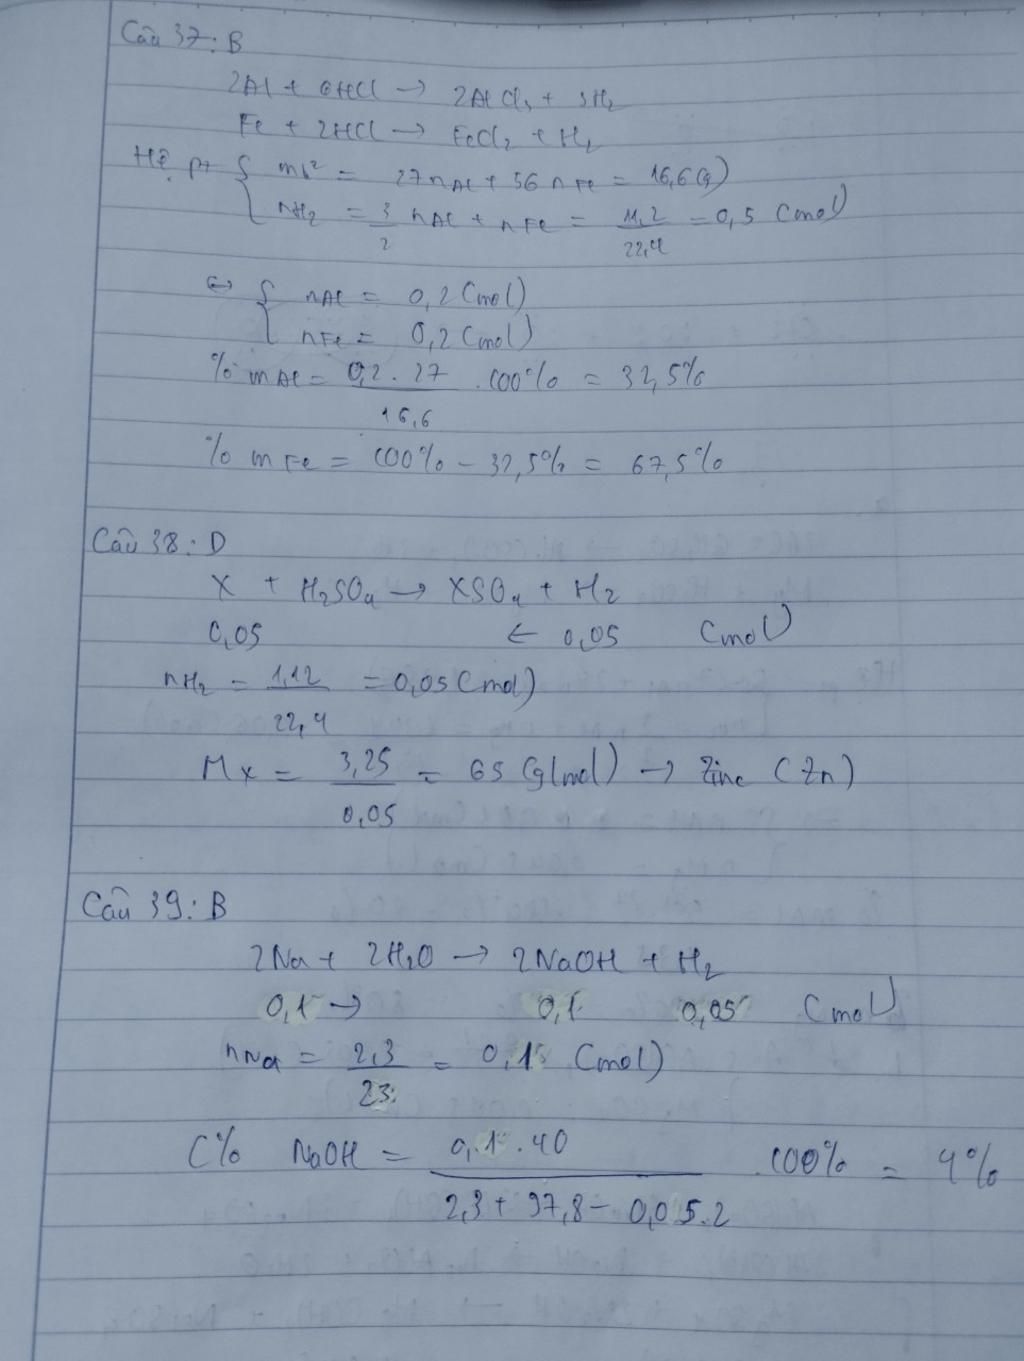 Câu 37: B
2Al + 6HCl → 2AlCl₃ + 3H₂
Fe + 2HCl → FeCl₂ + H₂
Hệ pt { mh² = 27nAl + 56nFe = 16,6(g)
nH₂ = 3/2 nAl + nFe = 11,2/22,4 = 0,5 (mol)
⇔ { nAl = 0,2 (mol)
nFe = 0,2 (mol)
% mAl = 0,2 . 27 / 16,6 . 100% = 32,5%
% mFe = 100% - 32,5% = 67,5%
Câu 38: D
X + H₂SO₄ → XSO₄ + H₂
0,05 ← 0,05 (mol)
nH₂ = 1,12/22,4 = 0,05 (mol)
Mx = 3,25/0,05 = 65 (g/mol) → Zinc (Zn)
Câu 39: B
2Na + 2H₂O → 2NaOH + H₂
0,1 → 0,1 0,05 (mol)
nNa = 2,3/23 = 0,1 (mol)
C% NaOH = 0,1 . 40 / 2,3 + 97,8 - 0,05.2 . 100% = 4%